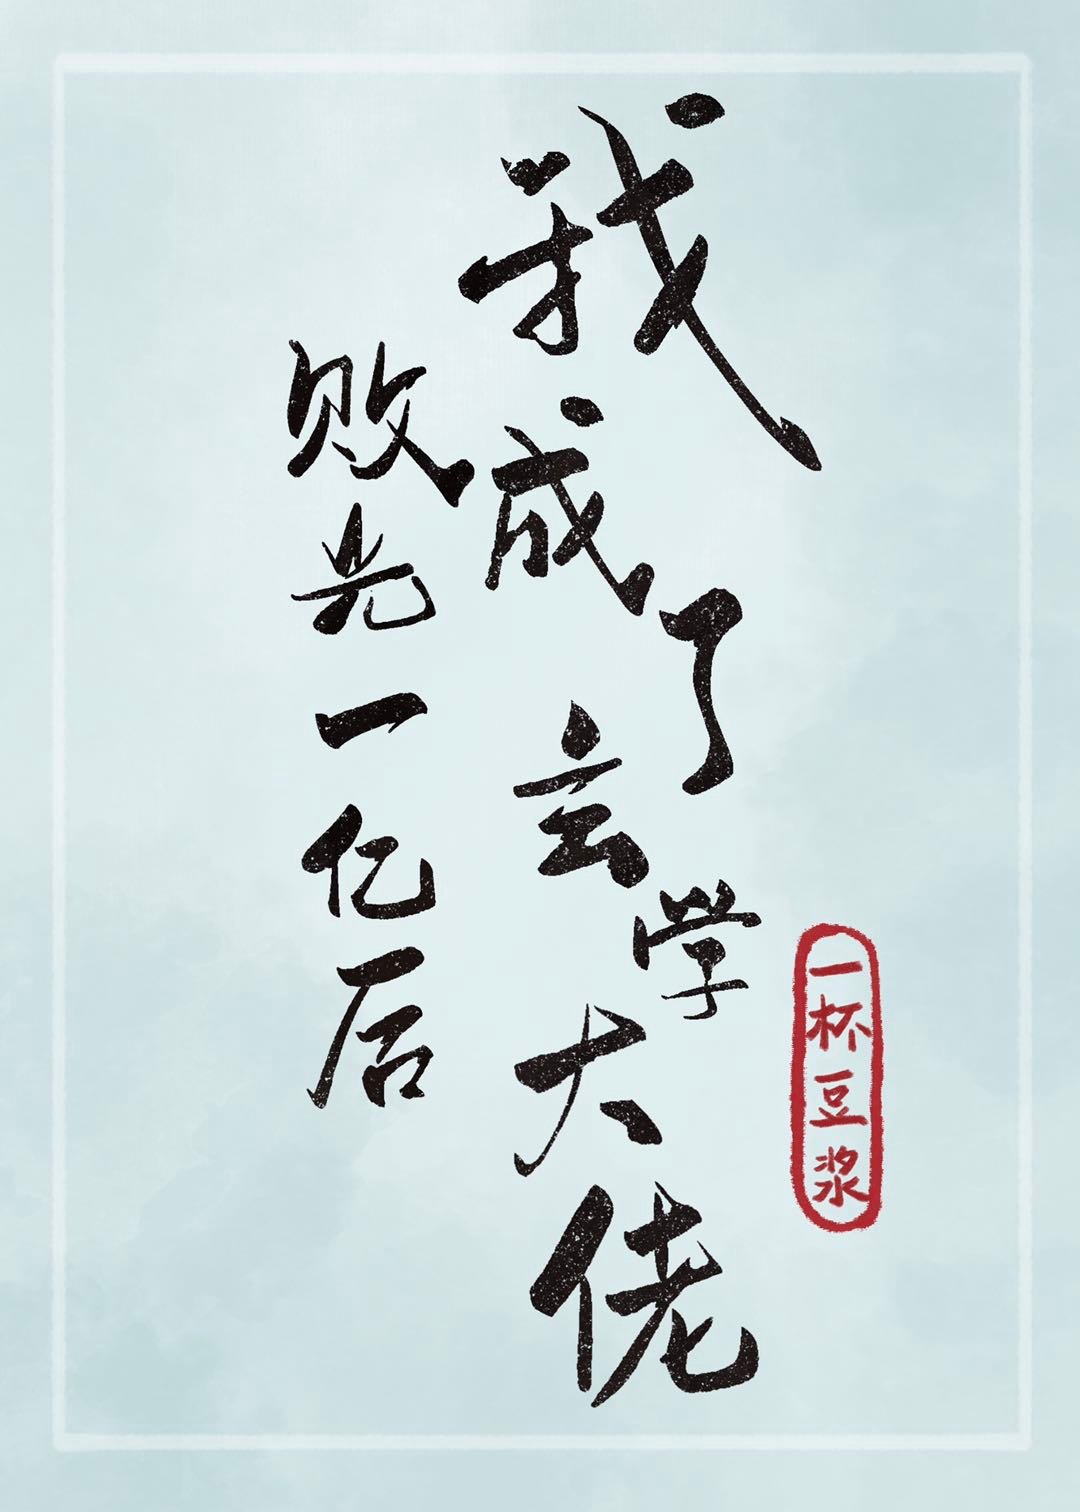 败光一亿后
我成了玄学大佬
一杯豆浆